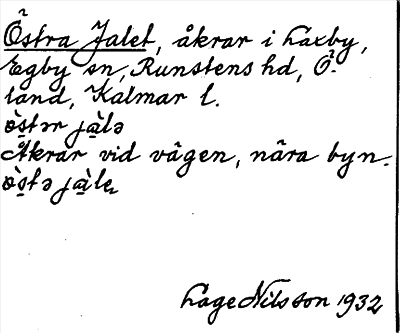 Östra Jalet, åkrar i Laxby,
Egby sn, Runstens hd, Ö-
land, Kalmar l.
ö̀stər jàlə
Åkrar vid vägen, nära byn.
ö̀stə jàle
Lage Nilsson 1932